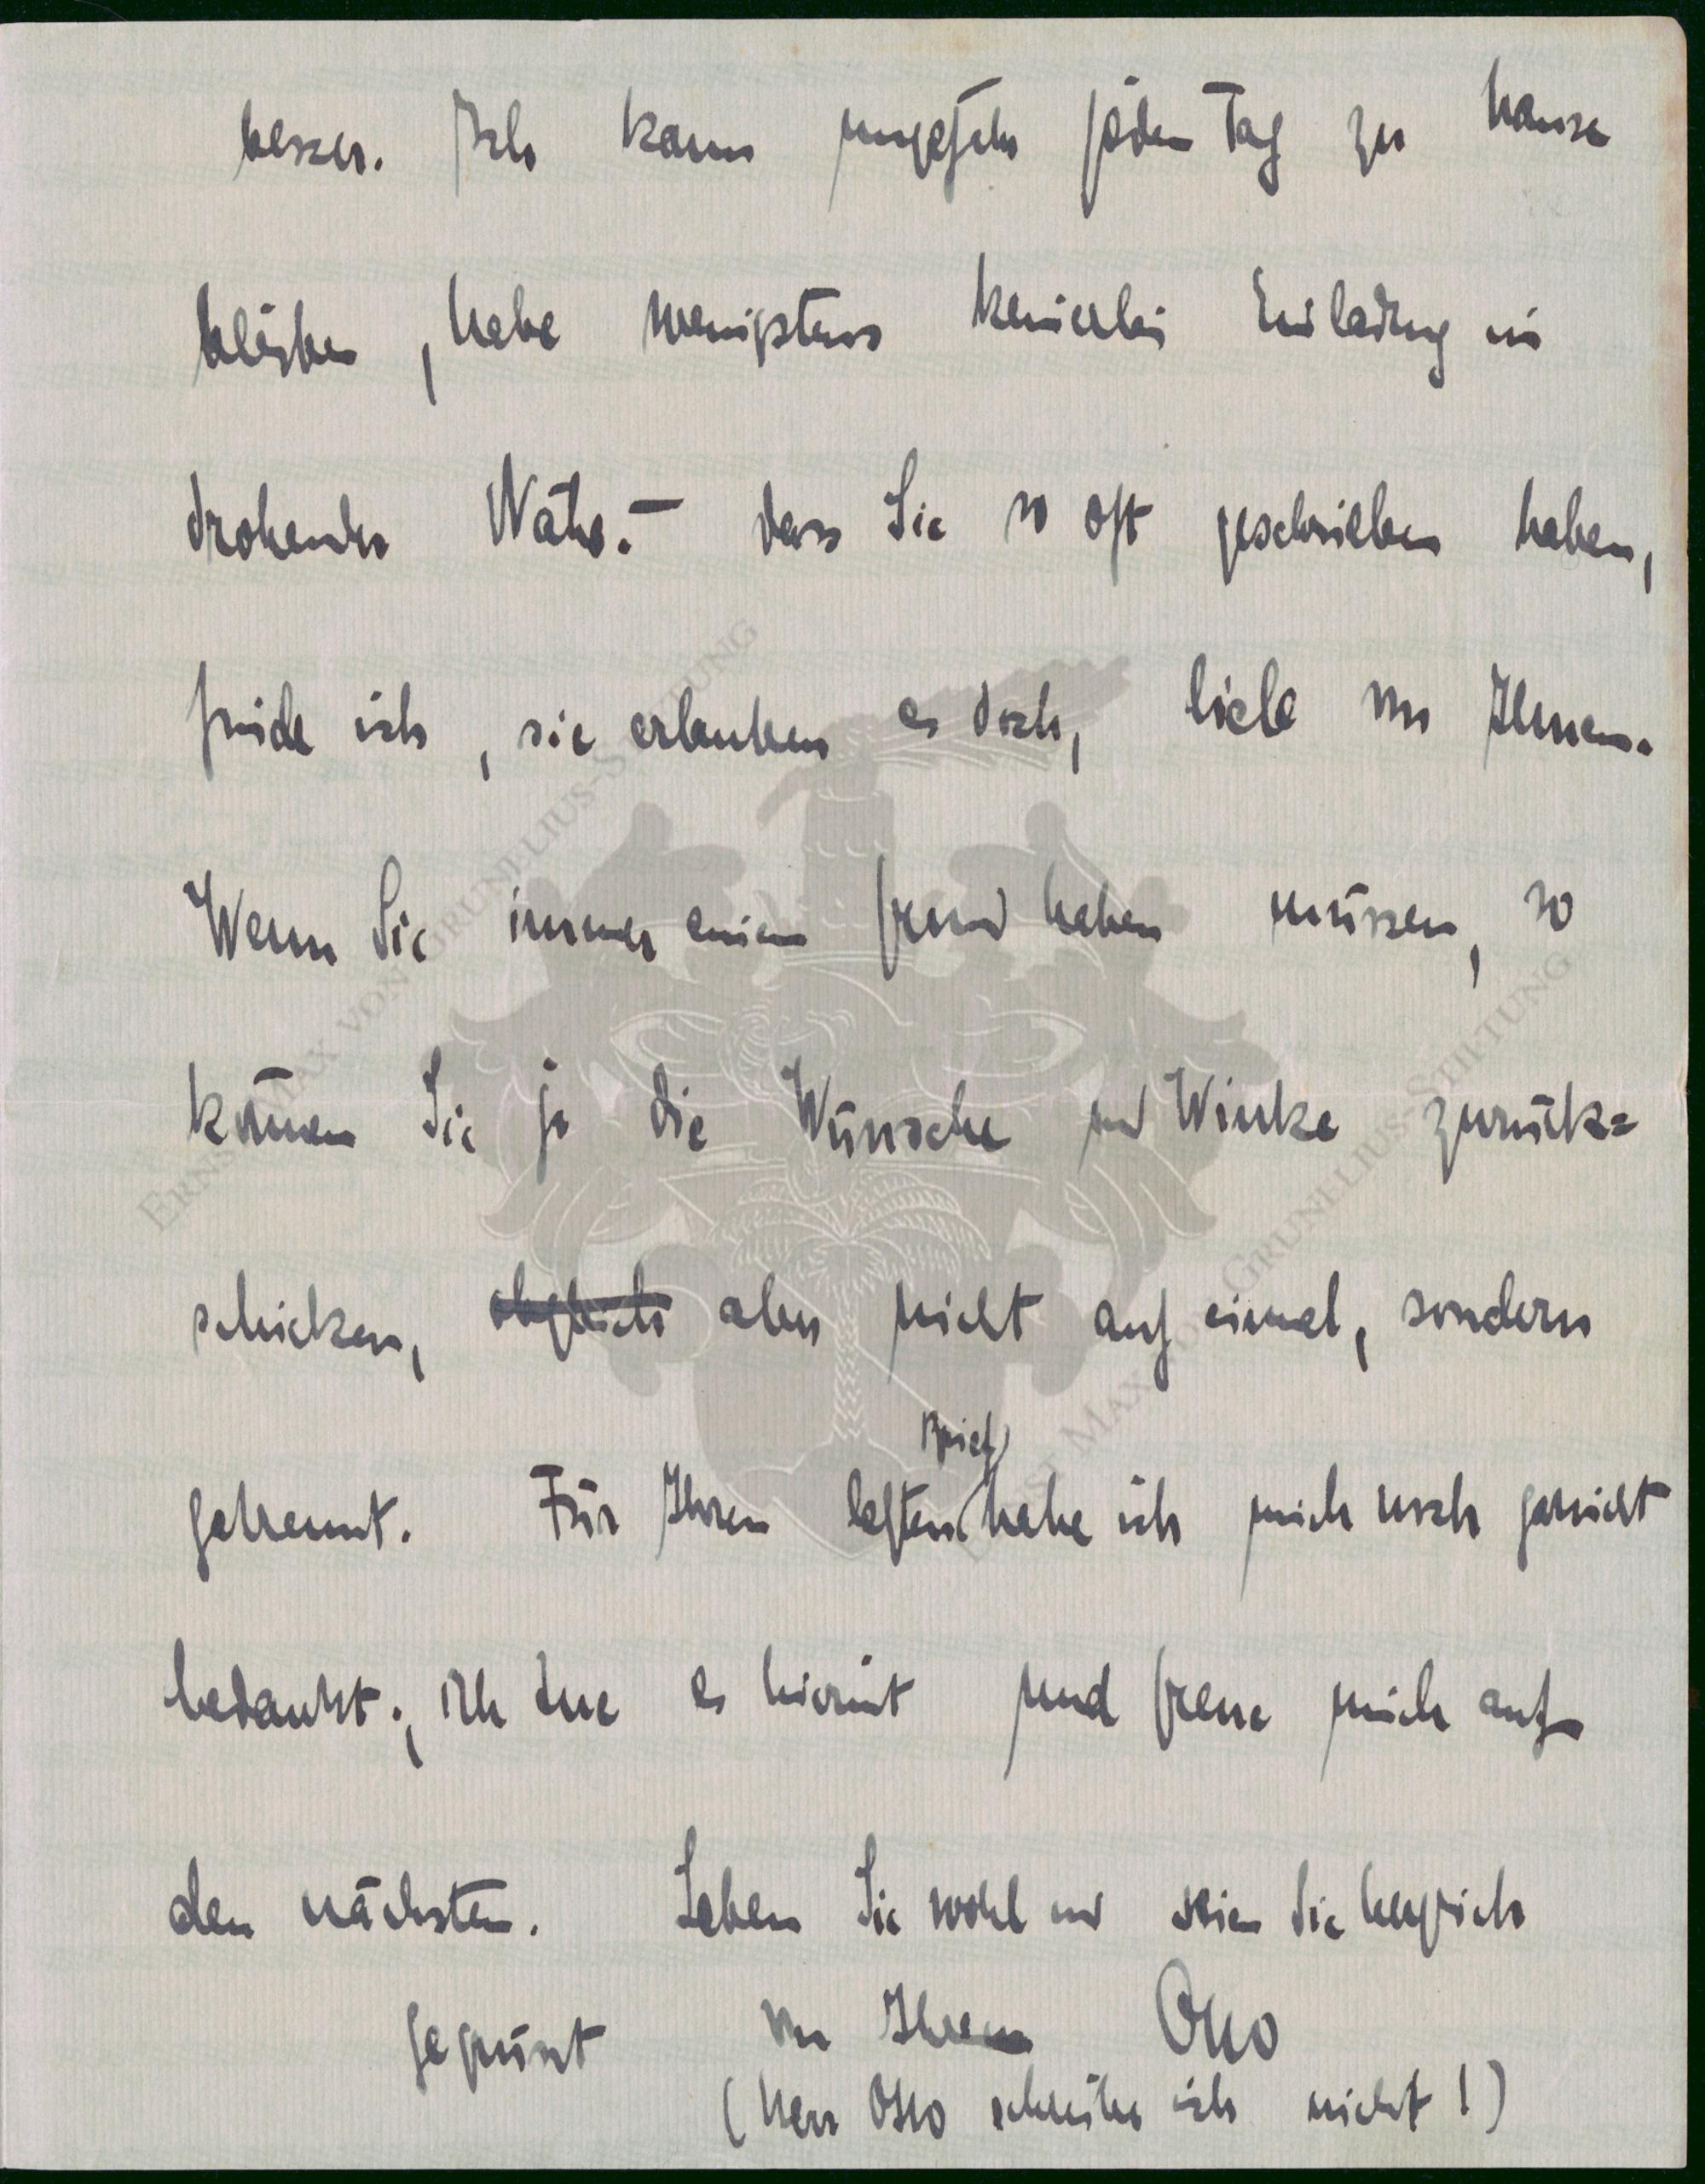 besser. Ich kann ungefähr jeden Tag zu hause
bleiben, habe wenigstens keinerlei Einladung in
drohender Nähe. – dass Sie so oft geschrieben haben,
finde ich, sie erlauben es doch, lieb von Ihnen.
Wenn Sie immer einen Grund haben müssen, so
können Sie ja die Wünsche und Winke zurück=
schicken, obgleich aber nicht auf einmal, sondern
getrennt. Für Ihren letzten Brief habe ich mich noch garnicht
bedankt; ich tue es hiermit und freue mich auf
den nächsten. Leben Sie wohl und seien Sie herzlich
gegrüsst von Ihrem Otto
(Herr Otto schreibe ich nicht!)
ERNST MAX VON GRUNELIUS-STIFTUNG
ERNST MAX VON GRUNELIUS-STIFTUNG